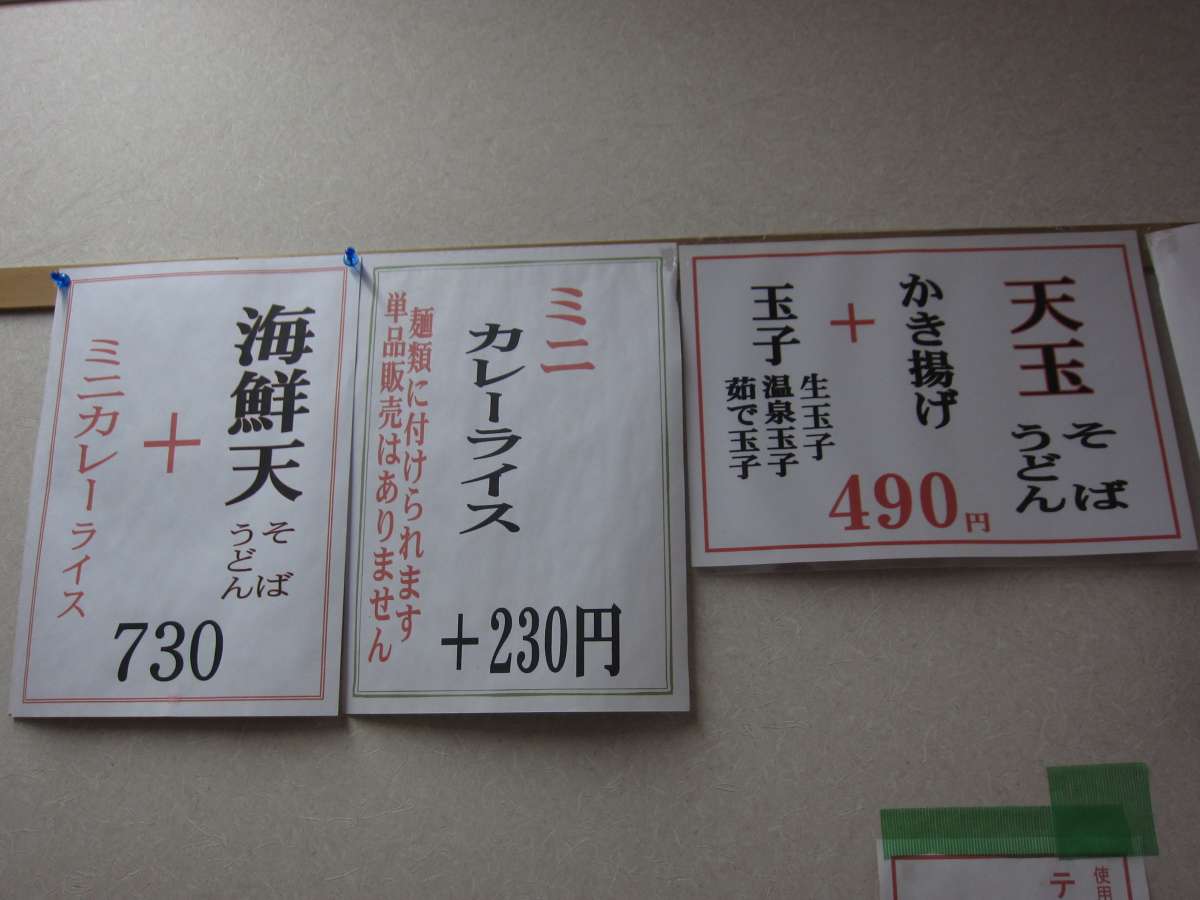 天玉
そば
うどん
かき揚げ
+
玉子
生玉子
温泉玉子
茹で玉子
490円
ミニ
カレーライス
麺類に付けられます
単品販売はありません
+230円
海鮮天
そば
うどん
+
ミニカレーライス
730
使用
テ